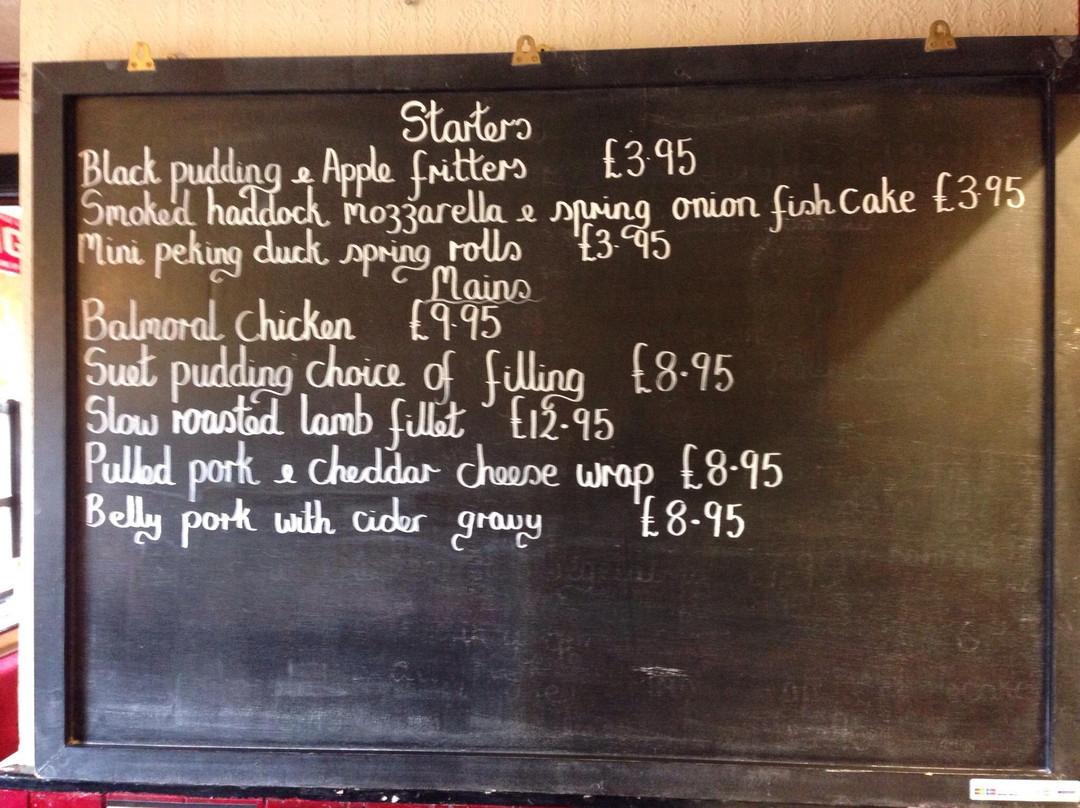 Starters
Black pudding e Apple fritters £3.95
Smoked haddock mozzarella e spring onion fish Cake £3.95
Mini peking duck spring rolls £3.95
Mains
Balmoral Chicken £9.95
Suet pudding choice of filling £8.95
Slow roasted lamb fillet £12.95
Pulled pork e cheddar cheese wrap £8.95
Belly pork with cider gravy £8.95